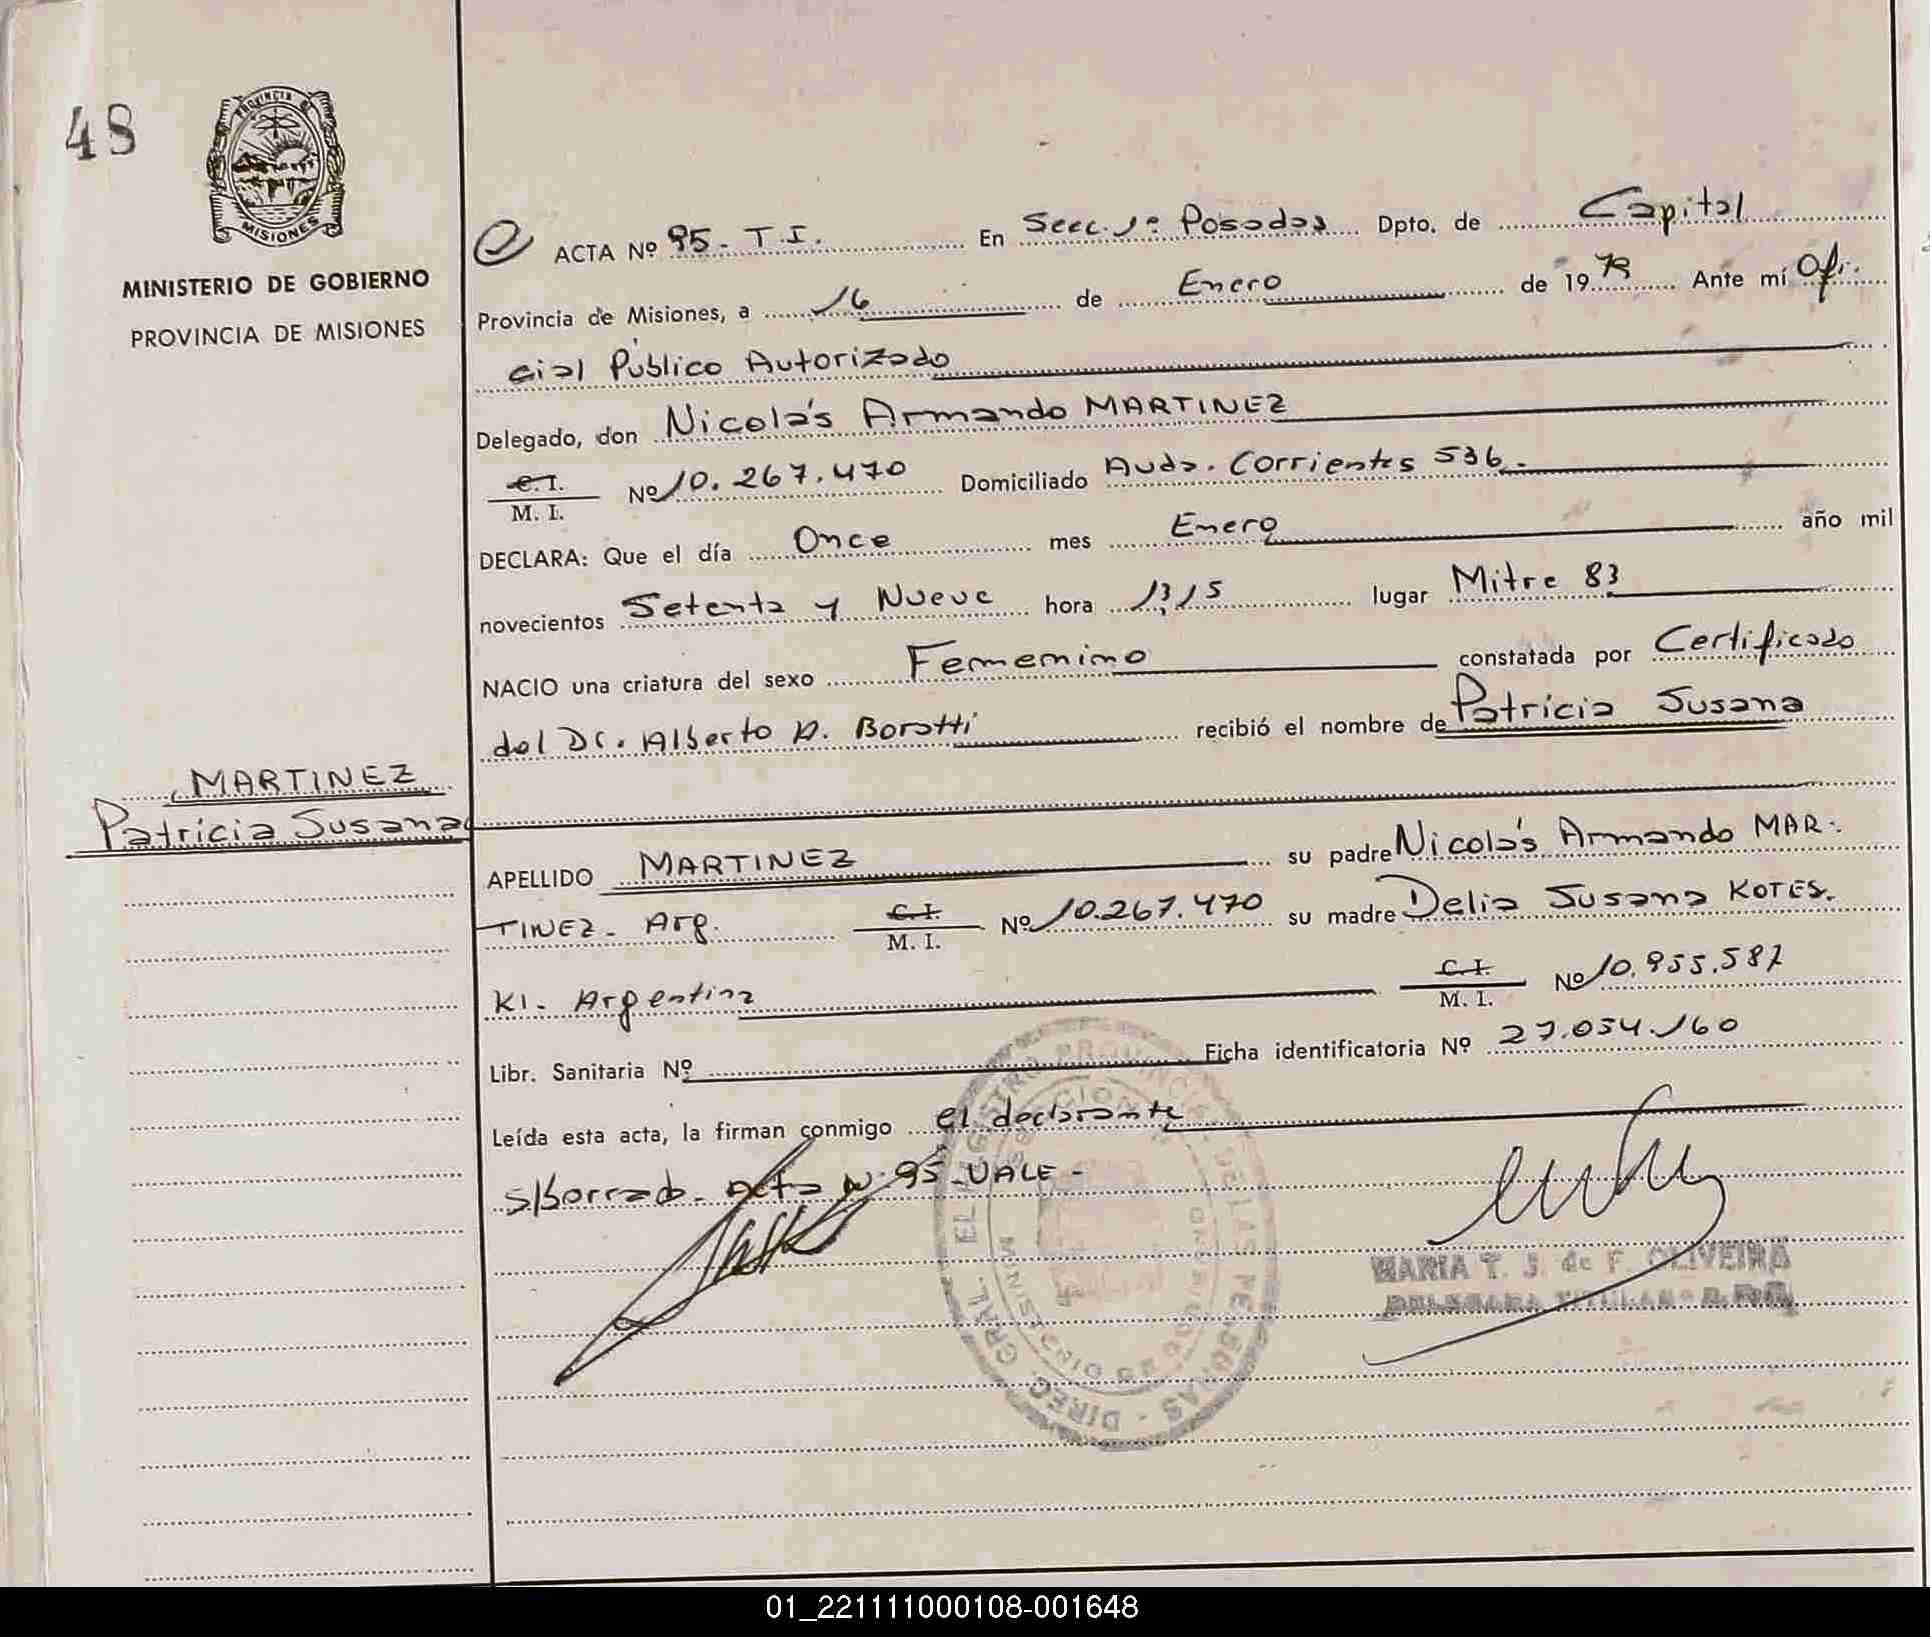 48
PROVINCIA DE
MISIONES
MINISTERIO DE GOBIERNO
PROVINCIA DE MISIONES
ACTA Nº 95 - T.I. En Secc. 1ª Posadas Dpto. de Capital
Provincia de Misiones, a 16 de Enero de 1979 Ante mí Ofi-
cial Público Autorizado
Delegado, don Nicolás Armando MARTINEZ
C.I.
M. I. Nº 10.267.470 Domiciliado Avda. Corrientes 536.
DECLARA: Que el día Once mes Enero año mil
novecientos Setenta y Nueve hora 13,15 lugar Mitre 83
NACIO una criatura del sexo Femenino constatada por Certificado
del Dr. Alberto A. Boratti recibió el nombre de Patricia Susana
MARTINEZ
Patricia Susana
APELLIDO MARTINEZ su padre Nicolás Armando MAR-
TINEZ - Arg. C.I.
M. I. Nº 10.267.470 su madre Delia Susana KOTES-
KI - Argentina C.I.
M. I. Nº 10.955.587
Libr. Sanitaria Nº Ficha identificatoria Nº 27.054.160
Leída esta acta, la firman conmigo el declarante
S/borrado - Acta Nº 95 - VALE -
DIREC. GRAL. EL REGISTRO PROVINCIAL DE LAS PERSONAS
MARIA T. J. de F. OLIVEIRA
DELEGADA TITULAR
01_221111000108-001648